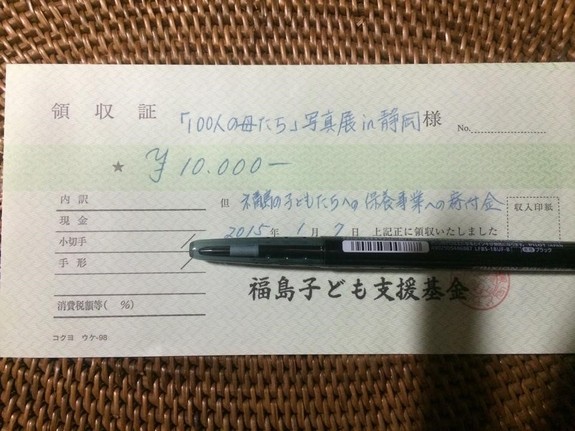 領収証 「100人の母たち」写真展in静岡 様 No.
★ ¥10.000−
内訳 但 福島の子どもたちへの保養事業への寄付金
現金 収入印紙
小切手 2015年1月7日 上記正に領収いたしました
手形
福島子ども支援基金
消費税額等( %)
コクヨ ウケ-98